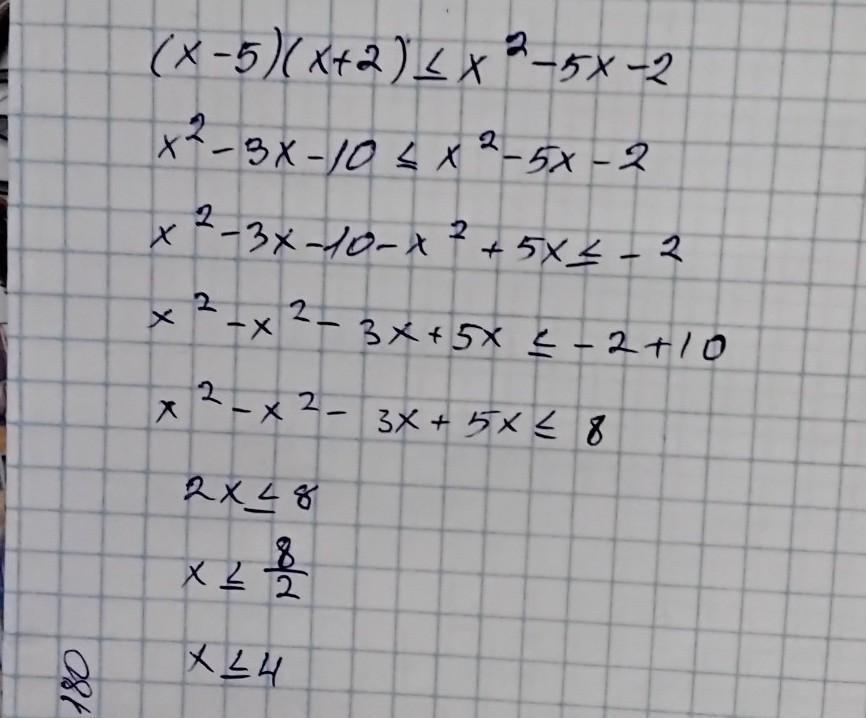 (x-5)(x+2) ≤ x²-5x-2
x²-3x-10 ≤ x²-5x-2
x²-3x-10-x²+5x ≤ -2
x²-x²-3x+5x ≤ -2+10
x²-x²-3x+5x ≤ 8
2x ≤ 8
x ≤ 8/2
x ≤ 4
180